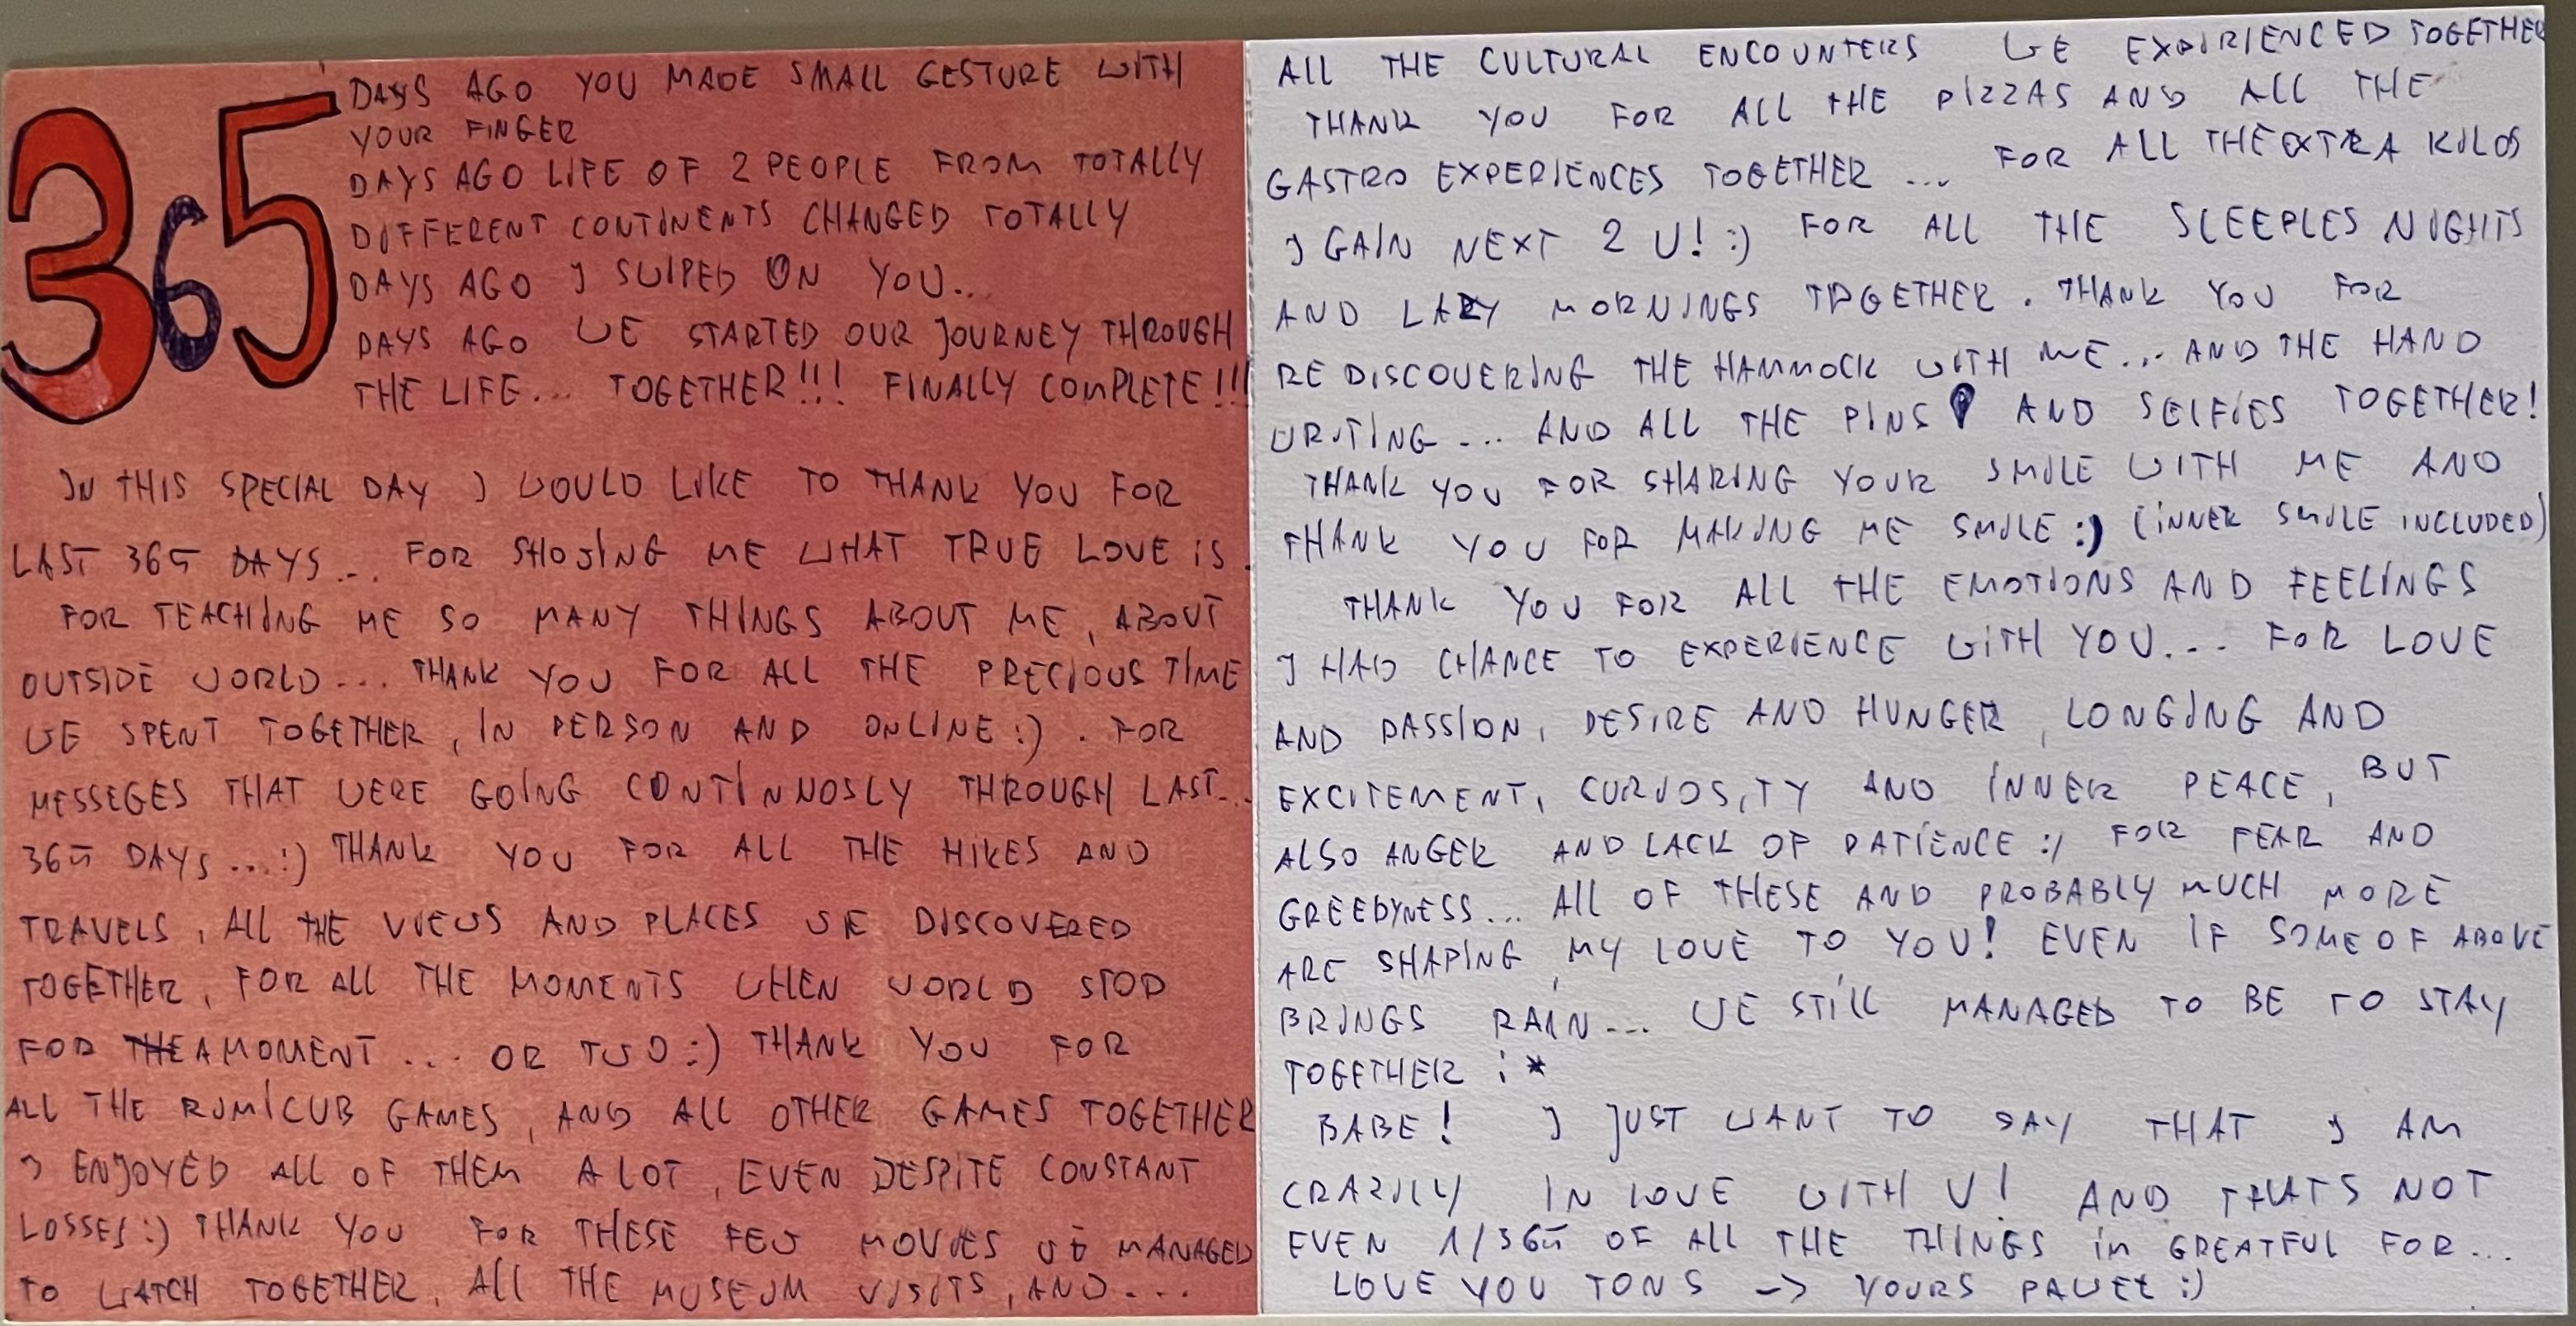 365
DAYS AGO YOU MADE SMALL GESTURE WITH
YOUR FINGER
DAYS AGO LIFE OF 2 PEOPLE FROM TOTALLY
DIFFERENT CONTINENTS CHANGED TOTALLY
DAYS AGO I SWIPED ON YOU...
DAYS AGO WE STARTED OUR JOURNEY THROUGH
THE LIFE... TOGETHER!!! FINALLY COMPLETE!!!
IN THIS SPECIAL DAY I WOULD LIKE TO THANK YOU FOR
LAST 365 DAYS... FOR SHOWING ME WHAT TRUE LOVE IS.
FOR TEACHING ME SO MANY THINGS ABOUT ME, ABOUT
OUTSIDE WORLD... THANK YOU FOR ALL THE PRECIOUS TIME
WE SPENT TOGETHER, IN PERSON AND ONLINE:). FOR
MESSEGES THAT WERE GOING CONTINNOSLY THROUGH LAST...
365 DAYS...:) THANK YOU FOR ALL THE HIKES AND
TRAVELS, ALL THE VIEWS AND PLACES WE DISCOVERED
TOGETHER, FOR ALL THE MOMENTS WHEN WORLD STOP
FOR A MOMENT... OR TWO:) THANK YOU FOR
ALL THE RUMICUB GAMES, AND ALL OTHER GAMES TOGETHER
I ENJOYED ALL OF THEM A LOT, EVEN DESPITE CONSTANT
LOSSES:) THANK YOU FOR THESE FEW MOVIES WE MANAGED
TO WATCH TOGETHER, ALL THE MUSEUM VISITS, AND...
ALL THE CULTURAL ENCOUNTERS WE EXPIRIENCED TOGETHER
THANK YOU FOR ALL THE PIZZAS AND ALL THE
GASTRO EXPERIENCES TOGETHER... FOR ALL THE EXTRA KILOS
I GAIN NEXT 2 U! :) FOR ALL THE SLEEPLES NIGHTS
AND LAZY MORNINGS TOGETHER. THANK YOU FOR
REDISCOVERING THE HAMMOCK WITH ME... AND THE HAND
WRITING... AND ALL THE PINS AND SELFIES TOGETHER!
THANK YOU FOR SHARING YOUR SMILE WITH ME AND
THANK YOU FOR MAKING ME SMILE:) (INNER SMILE INCLUDED)
THANK YOU FOR ALL THE EMOTIONS AND FEELINGS
I HAD CHANCE TO EXPERIENCE WITH YOU... FOR LOVE
AND PASSION, DESIRE AND HUNGER, LONGING AND
EXCITEMENT, CURIOSITY AND INNER PEACE, BUT
ALSO ANGER AND LACK OF PATIENCE :/ FOR FEAR AND
GREEDYNESS... ALL OF THESE AND PROBABLY MUCH MORE
ARE SHAPING MY LOVE TO YOU! EVEN IF SOME OF ABOVE
BRINGS RAIN... WE STILL MANAGED TO BE TO STAY
TOGETHER :*
BABE! I JUST WANT TO SAY THAT I AM
CRAZILY IN LOVE WITH U! AND THATS NOT
EVEN 1/365 OF ALL THE THINGS IM GREATFUL FOR...
LOVE YOU TONS -> YOURS PAWEŁ :)